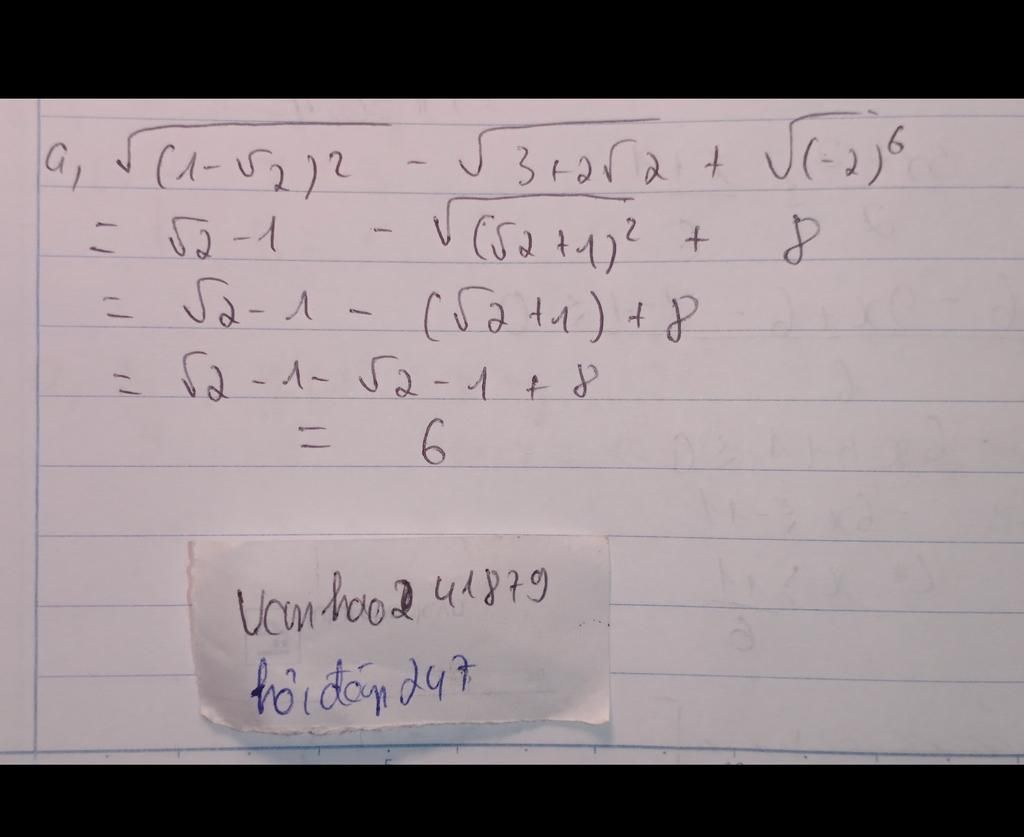 a, √(1-√2)² - √3+2√2 + √(-2)⁶
= √2-1 - √(√2+1)² + 8
= √2-1 - (√2+1)+8
= √2-1-√2-1+8
= 6
Vanhao2 41879
hỏi đáp 247